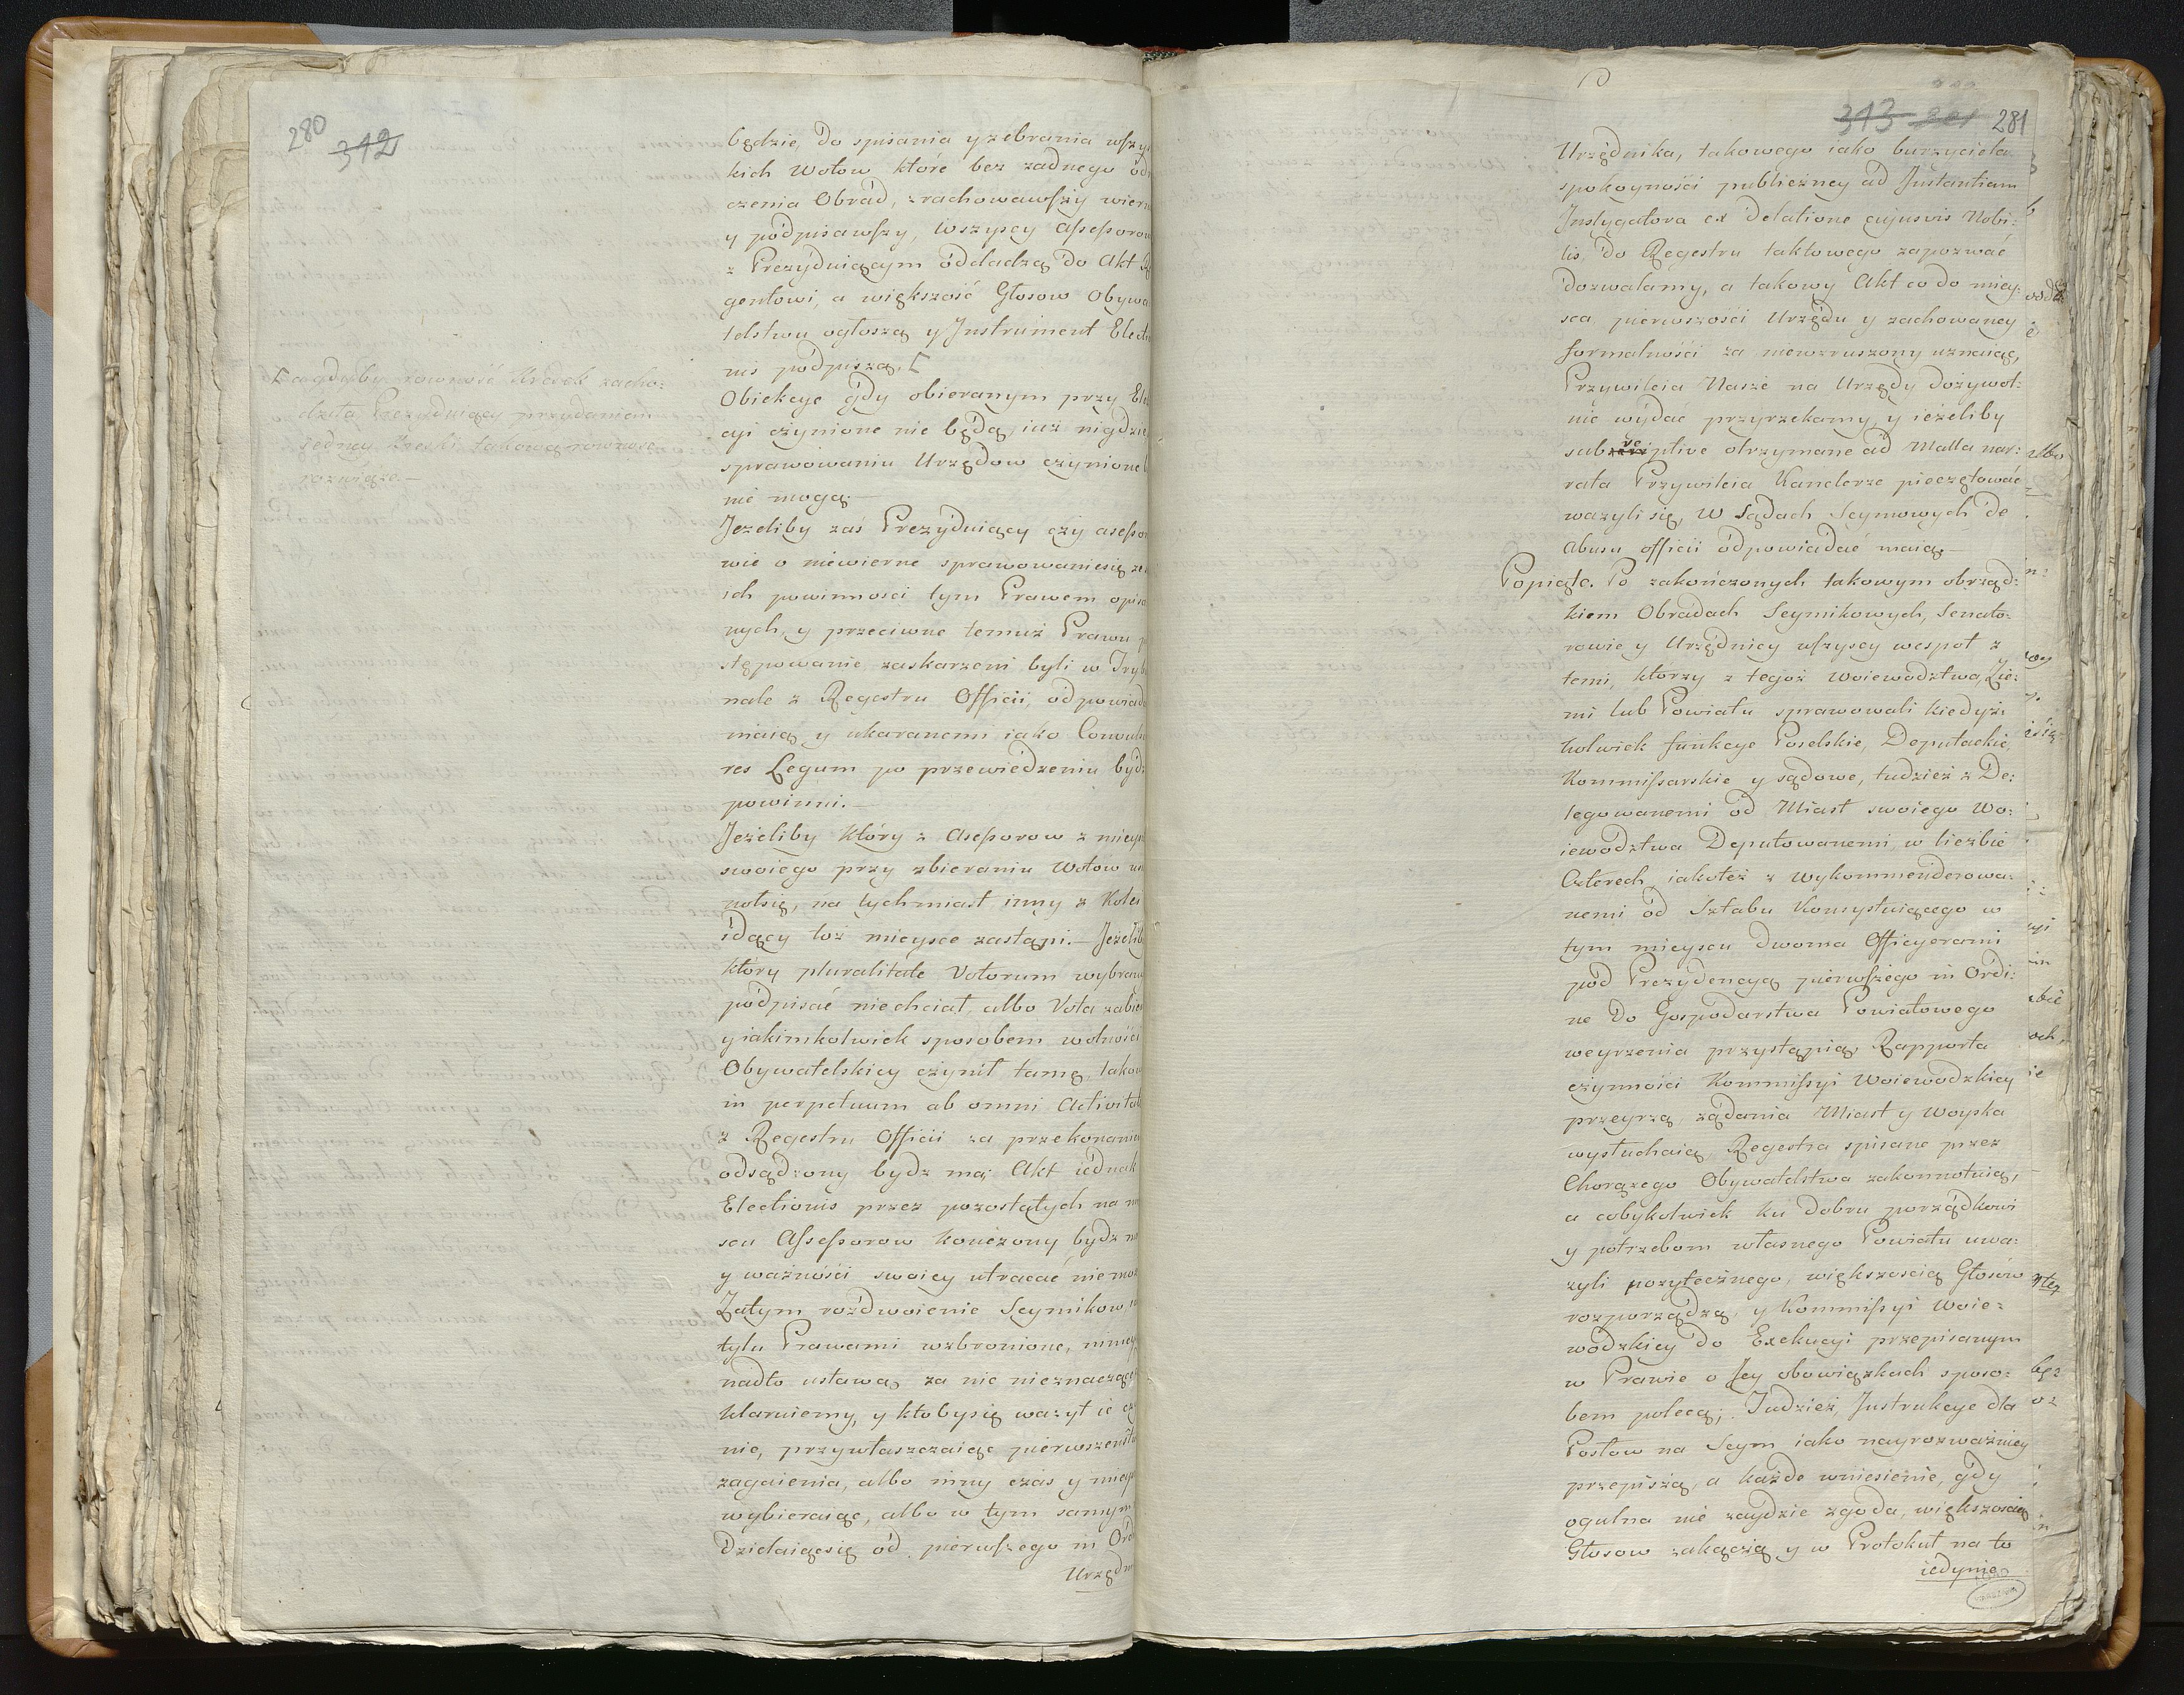 280
312
będzie, do spisania y zebrania wszy
kich Wotow które bez zadnego od
czenia Obrad, zrachowawszy wiern
y podpisawszy, wszyscy Assessorow
z Prezyduiącym oddadzą do Akt
gentowi, a większość Głosow Obywa
telstwu ogłoszą y Instrument Electi
nis podpiszą.
a gdyby rowność Kresek zacho:
dziła, Prezyduiący przydaniem
jedney Kreski takową rowność
rozwiąże.—
Obiekcye gdy obieranym przy Ele
cyi czynione nie będą, iuż nigdzie
sprawowaniu Urzędow czynione
nie mogą.—
Jezeliby zaś Prezyduiący czy asesso
wie o niewierne sprawowaniesię ze
ich powinnosci tym Prawem opisa
nych, y przeciwne temuż Prawu
stępowanie zaskarzeni byli w Tryb
nale z Regestru Officii, odpowiad
maią y ukaranemi iako Convuls
res Legum po przewiedzeniu bydz
powinni.—
Jeżeliby który z Asessorow z mieys
swoiego przy zbieraniu Wotow u
nołsię, na tychmiast inny z Kolei
idący toż mieysce zastąpi.— Jeżelib
który pluralitate Votorum wybrany
podpisać niechciał, albo Vota zabie
y iakimkolwiek sposobem wolności
Obywatelskiey czynił tamę, takow
in perpetuum ab omni Activitat
z Regestru Officii za przekonanie
odsądzony bydz ma; Akt iednak
Electionis przez pozostałych na m
scu Assessorow kończony bydz m
y ważności swoiey utracać niemoż
Zatym rozdwoienie Seymikow
tylu Prawami wzbronione, niniey
nadto ustawą za nic nieznaczące
klaruiemy, y ktobysię ważył ie
nic, przywłaszczaiąc pierwszeństw
zagaienia, albo inny czas y mieys
wybieraiąc, albo w tym samym
dzielaiącsię od pierwszego in Ord
Urzędn
313 281
Urzędnika, takowego iako burzyciela
spokoyności publiczney ad Instantiam
Instygatora ex delatione cujusvis Nobi:
lis, do Regestru taktowego zapozwać
dozwalamy, a takowy Akt co do miey:
sca, pierwszości Urzędu y zachowaney
formalności za niewzruszony uznaiąc,
Przywileia Nasze na Urzędy dożywot:
nie wydac przyrzekamy, y ieżeliby
subreptive otrzymane ad Malla nar:
rata Przywileia Kanclerze pieczętować
wazyli się, w Sądach Seymowych de
Abusu officii odpowiadać maią.—
Popiąte. Po zakończonych takowym obrząd:
kiem Obradach Seymikowych, Senato:
rowie y Urzędnicy wszyscy wespoł z
temi, ktorzy z tegoż Woiewodztwa, Zie:
mi lub Powiatu sprawowali kiedyż:
kolwiek funkcye Poselskie, Deputackie,
Kommissarskie y sądowe, tudzież z De:
legowanemi od Miast swoiego Wo:
iewodztwa Deputowanemi, w liczbie
Czterech, iakoteż z Wykommenderowa:
nemi od Sztabu Konsystuiącego w
tym mieyscu dwoma Officyerami
pod Prezydencyą pierwszego in Ordi:
ne do Gospodarstwa Powiatowego
weyrzenia przystąpią, Rapporta
czynności Kommissyi Woiewodzkiey
przeyrzą, ządania Miast y Woyska
wysłuchaią, Regestra spisane przez
Chorązego Obywatelstwa zakonnotuią,
a cobykolwiek ku dobru porządkowi
y potrzebom własnego Powiatu uwa:
zyli pozytecznego, większoscią Głosow
rozporządzą, y Kommissyi Woie:
wodzkiey do Exekucyi przepisanym
w Prawie o Jey obowiązkach sposo:
bem polecą; Tudzież, Instrukcye dla
Posłow na Seym iako nayrozważniey
przepiszą, a każde wniesienie, gdy
ogulna nie zaydzie zgoda, większoscią
Głosow załączą y w Protokuł na to
iedynie